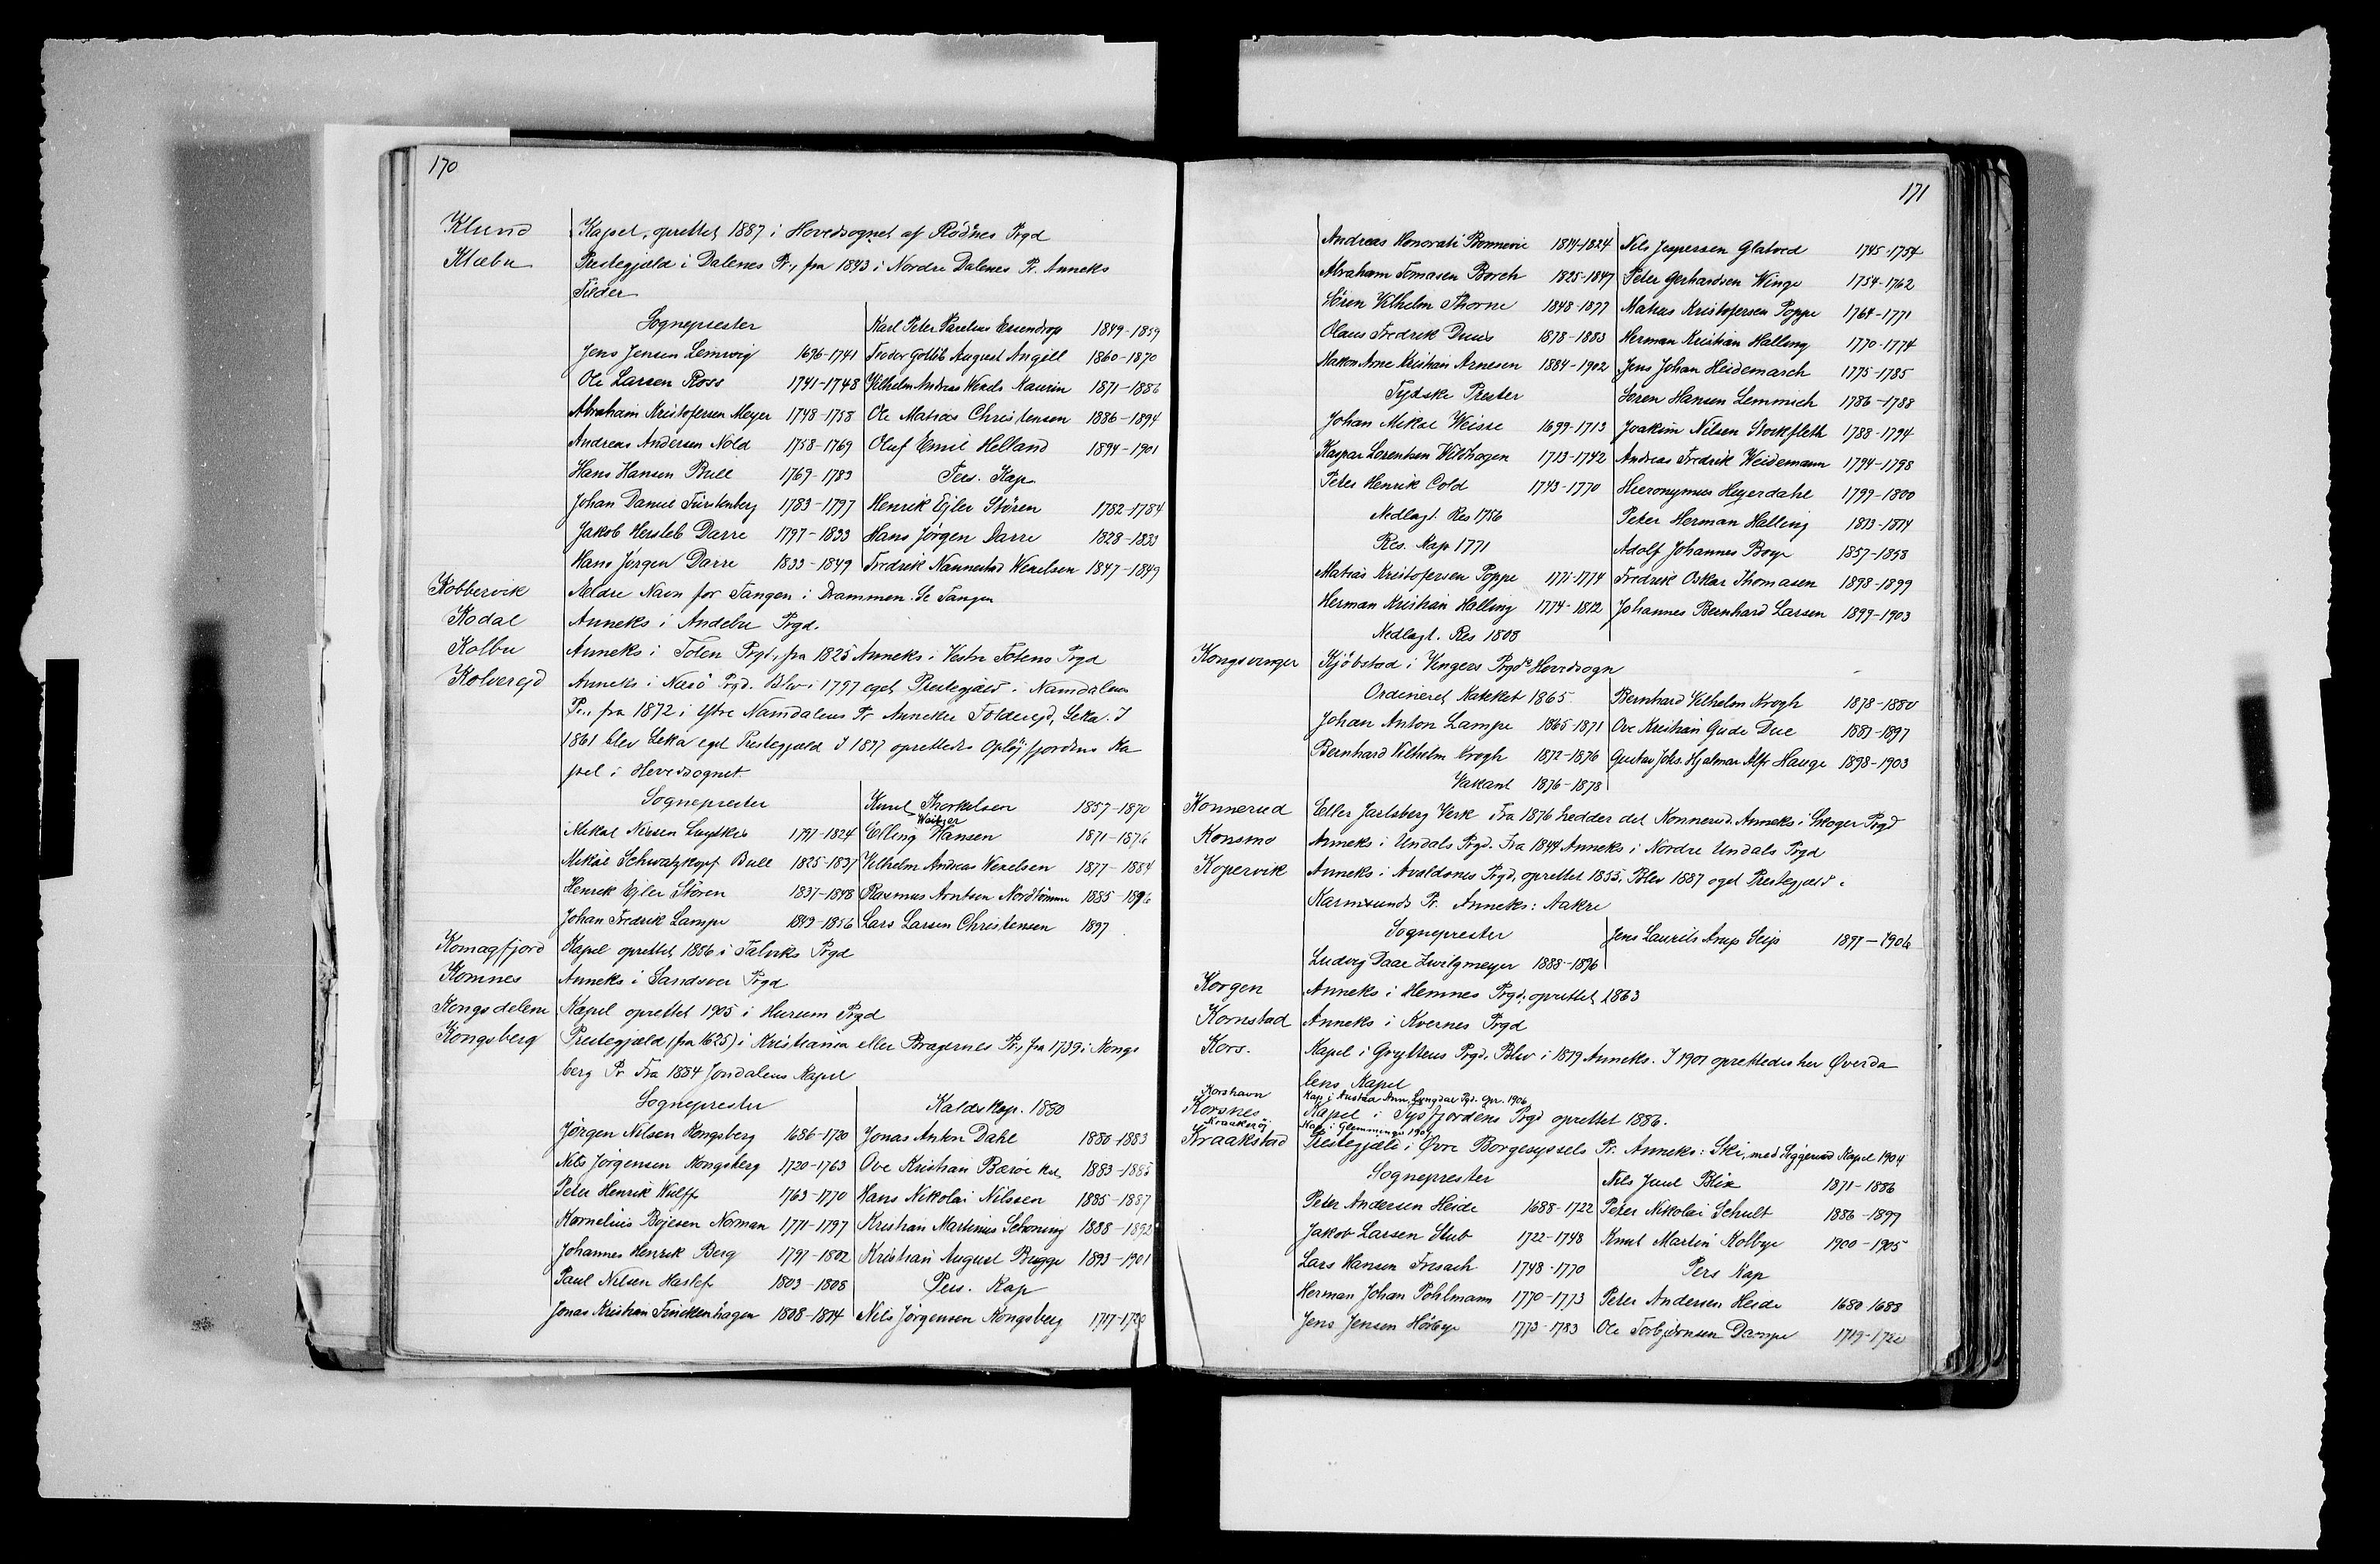 170
Klund Kapel, oprettet 1887 i Hovedsognet af Rödnes Prgd
Klæbu Prestegjæld i Dalenes Pr., fra 1843 i Nordre Dalenes Pr. Anneks
Tilder
Sogneprester
Jens Jensen Lemvig 1696-1741
Ole Larsen Ross 1741-1748
Abraham Kristofersen Meyer 1748-1758
Andreas Andersen Nold 1758-1769
Hans Hansen Bull 1769-1783
Johan Daniel Fürstenberg 1783-1797
Jakob Hersleb Darre 1797-1833
Hans Jörgen Darre 1833-1849
Karl Peter Parelius Essendrop 1849-1859
Teodor Gottlib August Angell 1860-1870
Vilhelm Andreas Wexels Maurin 1871-1886
Ole Matias Christenson 1886-1894
Oluf Emil Helland 1894-1901
Pers. Kap.
Henrik Ejler Stören 1782-1784
Hans Jörgen Darre 1828-1833
Fredrik Nannestad Wexelsen 1847-1849
Kobbervik Ældre Navn for Tangen i Drammen. Se Tangen
Kodal Anneks i Andebu Prgd.
Kolbu Anneks i Toten Prgd., fra 1825 Anneks i Vestre Totens Prgd
Kolverejd Anneks i Narö Prgd. Blev i 1797 eget Prestegjæld i Namdalens
Pr., fra 1872 i Ytre Namdalens Pr Annekser Folderejd, Leka. I
1861 blev Leka eget Prestegjæld I 1877 oprettedes Oplöjfjordens Ka
pel i Hovedsognet
Sogneprester
Mikal Nilssen 1797-1824
Mikael Schwatzkopf Bull 1825-1837
Henrik Ejler Stören 1837-1848
Johan Fredrik Lampe 1849-1856
Knud Thorkelsen 1857-1870
Elling Weitzer Hansen 1871-1876
Vilhelm Andreas Wexelsen 1877-1884
Rasmus Arntsen Nordtömme 1885-1896
Lars Larsen Christensen 1897
Komagfjord Kapel oprettet 1886 i Talviks Prgd
Komnes Anneks i Sandsver Prgd
Kongsdelene Kapel oprettet 1905 i Hurum Prgd
Kongsberg Prestegjæld (fra 1625) i Kristiania eller Bragernes Pr., fra 1739 i Kongs
berg Pr Fra 1884 Jondalens Kapel
Sogneprester
Jörgen Nilsen Kongsberg 1686-1720
Nils Jörgensen Kongsberg 1720-1763
Peter Henrik Wulff 1763-1770
Kornelius Bojesen Norman 1771-1797
Johannes Henrik Berg 1797-1802
Paul Nilsen Haslef 1803-1808
Jonas Kristian Finckenhagen 1808-1814
Kaldskap. 1880
Jonas Anton Dahl 1880-1883
Ove Kristian Barøe kst 1883-1885
Hans Nikolai Nilssen 1885-1887
Kristian Martinius Schoning 1888-1892
Kristian August Bugge 1893-1901
Pers. Kap
Nils Jörgensen Kongsberg 1717-1720
171
Andreas Honorati Bonnevie 1814-1824
Abraham Tomasen Borch 1825-1847
Sören Vilhelm Thorne 1848-1877
Olaus Fredrik Duus 1878-1883
Haakon Arne Kristian Arnesen 1884-1902
Tydske Prester
Johan Mikal Weisse 1699-1713
Kaspar Lorentsen Wildhagen 1713-1742
Peter Henrik Cold 1743-1770
Nedlagt. Res 1756
Res. Kap 1771
Matias Kristofersen Poppe 1771-1774
Herman Kristian Halling 1774-1812
Nedlagt. Res 1808
Nils Jespersen Glatved 1745-1754
Peter Gerhardsen Winge 1754-1762
Matias Kristofersen Poppe 1764-1771
Herman Kristian Halling 1770-1774
Jens Johan Heidemarch 1775-1785
Soren Hansen Lemmich 1786-1788
Joakim Nilsen Stockfleth 1788-1794
Andreas Fredrik Weidemann 1794-1798
Hieronymus Heyerdahl 1799-1800
Peter Herman Halling 1813-1814
Adolf Johannes Boye 1857-1858
Fredrik Oskar Thomasen 1898-1899
Johannes Bernhard Larsen 1899-1903
Kongsvinger Kjöbstad i Vingers Prgds Hovedsogn
Ordineret Kateket 1865
Johan Anton Lampe 1865-1871
Bernhard Vilhelm Krogh 1872-1876
Vakant 1876-1878
Bernhard Vilhelm Krogh 1878-1880
Ove Kristian Gude Due 1881-1897
Gustav Johs. Hjalmar Alfr Hauge 1898-1903
Konnerud Eller Jarlsberg Verk Fra 1876 hedder det Konnerud. Anneks i Skoger Prgd
Konsmo Anneks i Undals Prgd. Fra 1844 Anneks i Nordre Undals Prgd
Kopervik Anneks i Avaldsnes Prgd, oprettet 1855. Blev 1887 eget Prestegjæld i
Karmsunds Pr. Anneks: Aakre
Sogneprester
Ludvig Daae Zwilgmeyer 1888-1896
Jens Laurits Arup Seip 1897-1906
Korgen Anneks i Hemnes Prgd. oprettet 1863
Kornstad Anneks i Kvernes Prgd
Kors. Kapel i Gryttens Prgd. Blev i 1879 Anneks. I 1901 oprettedes her Øverda
lens Kapel
Korshavn Kap i Austad Ann. Lyngdal Pgd. Opr. 1906
Korsnes. Kapel i Tysfjordens Prgd oprettet 1886.
Kraakerøj Kap i Glemminge 1907
Kraakstad Prestegjæld i Øvre Borgesyssels Pr. Anneks: Ski, med Siggerud Kapel 1904
Sogneprester
Peter Andersen Heide 1688-1722
Jakob Larsen Stub 1722-1748
Lars Hansen Friisach 1748-1770
Herman Johan Pohlmann 1770-1773
Jens Jensen Hörbye 1773-1783
Nils Juul Blix 1871-1886
Peter Nikolai Schult 1886-1899
Knut Martin Kolbye 1900-1905
Pers Kap
Peter Andersen Heide 1680-1688
Ole Torbjörnsen Dampe 1719-1720